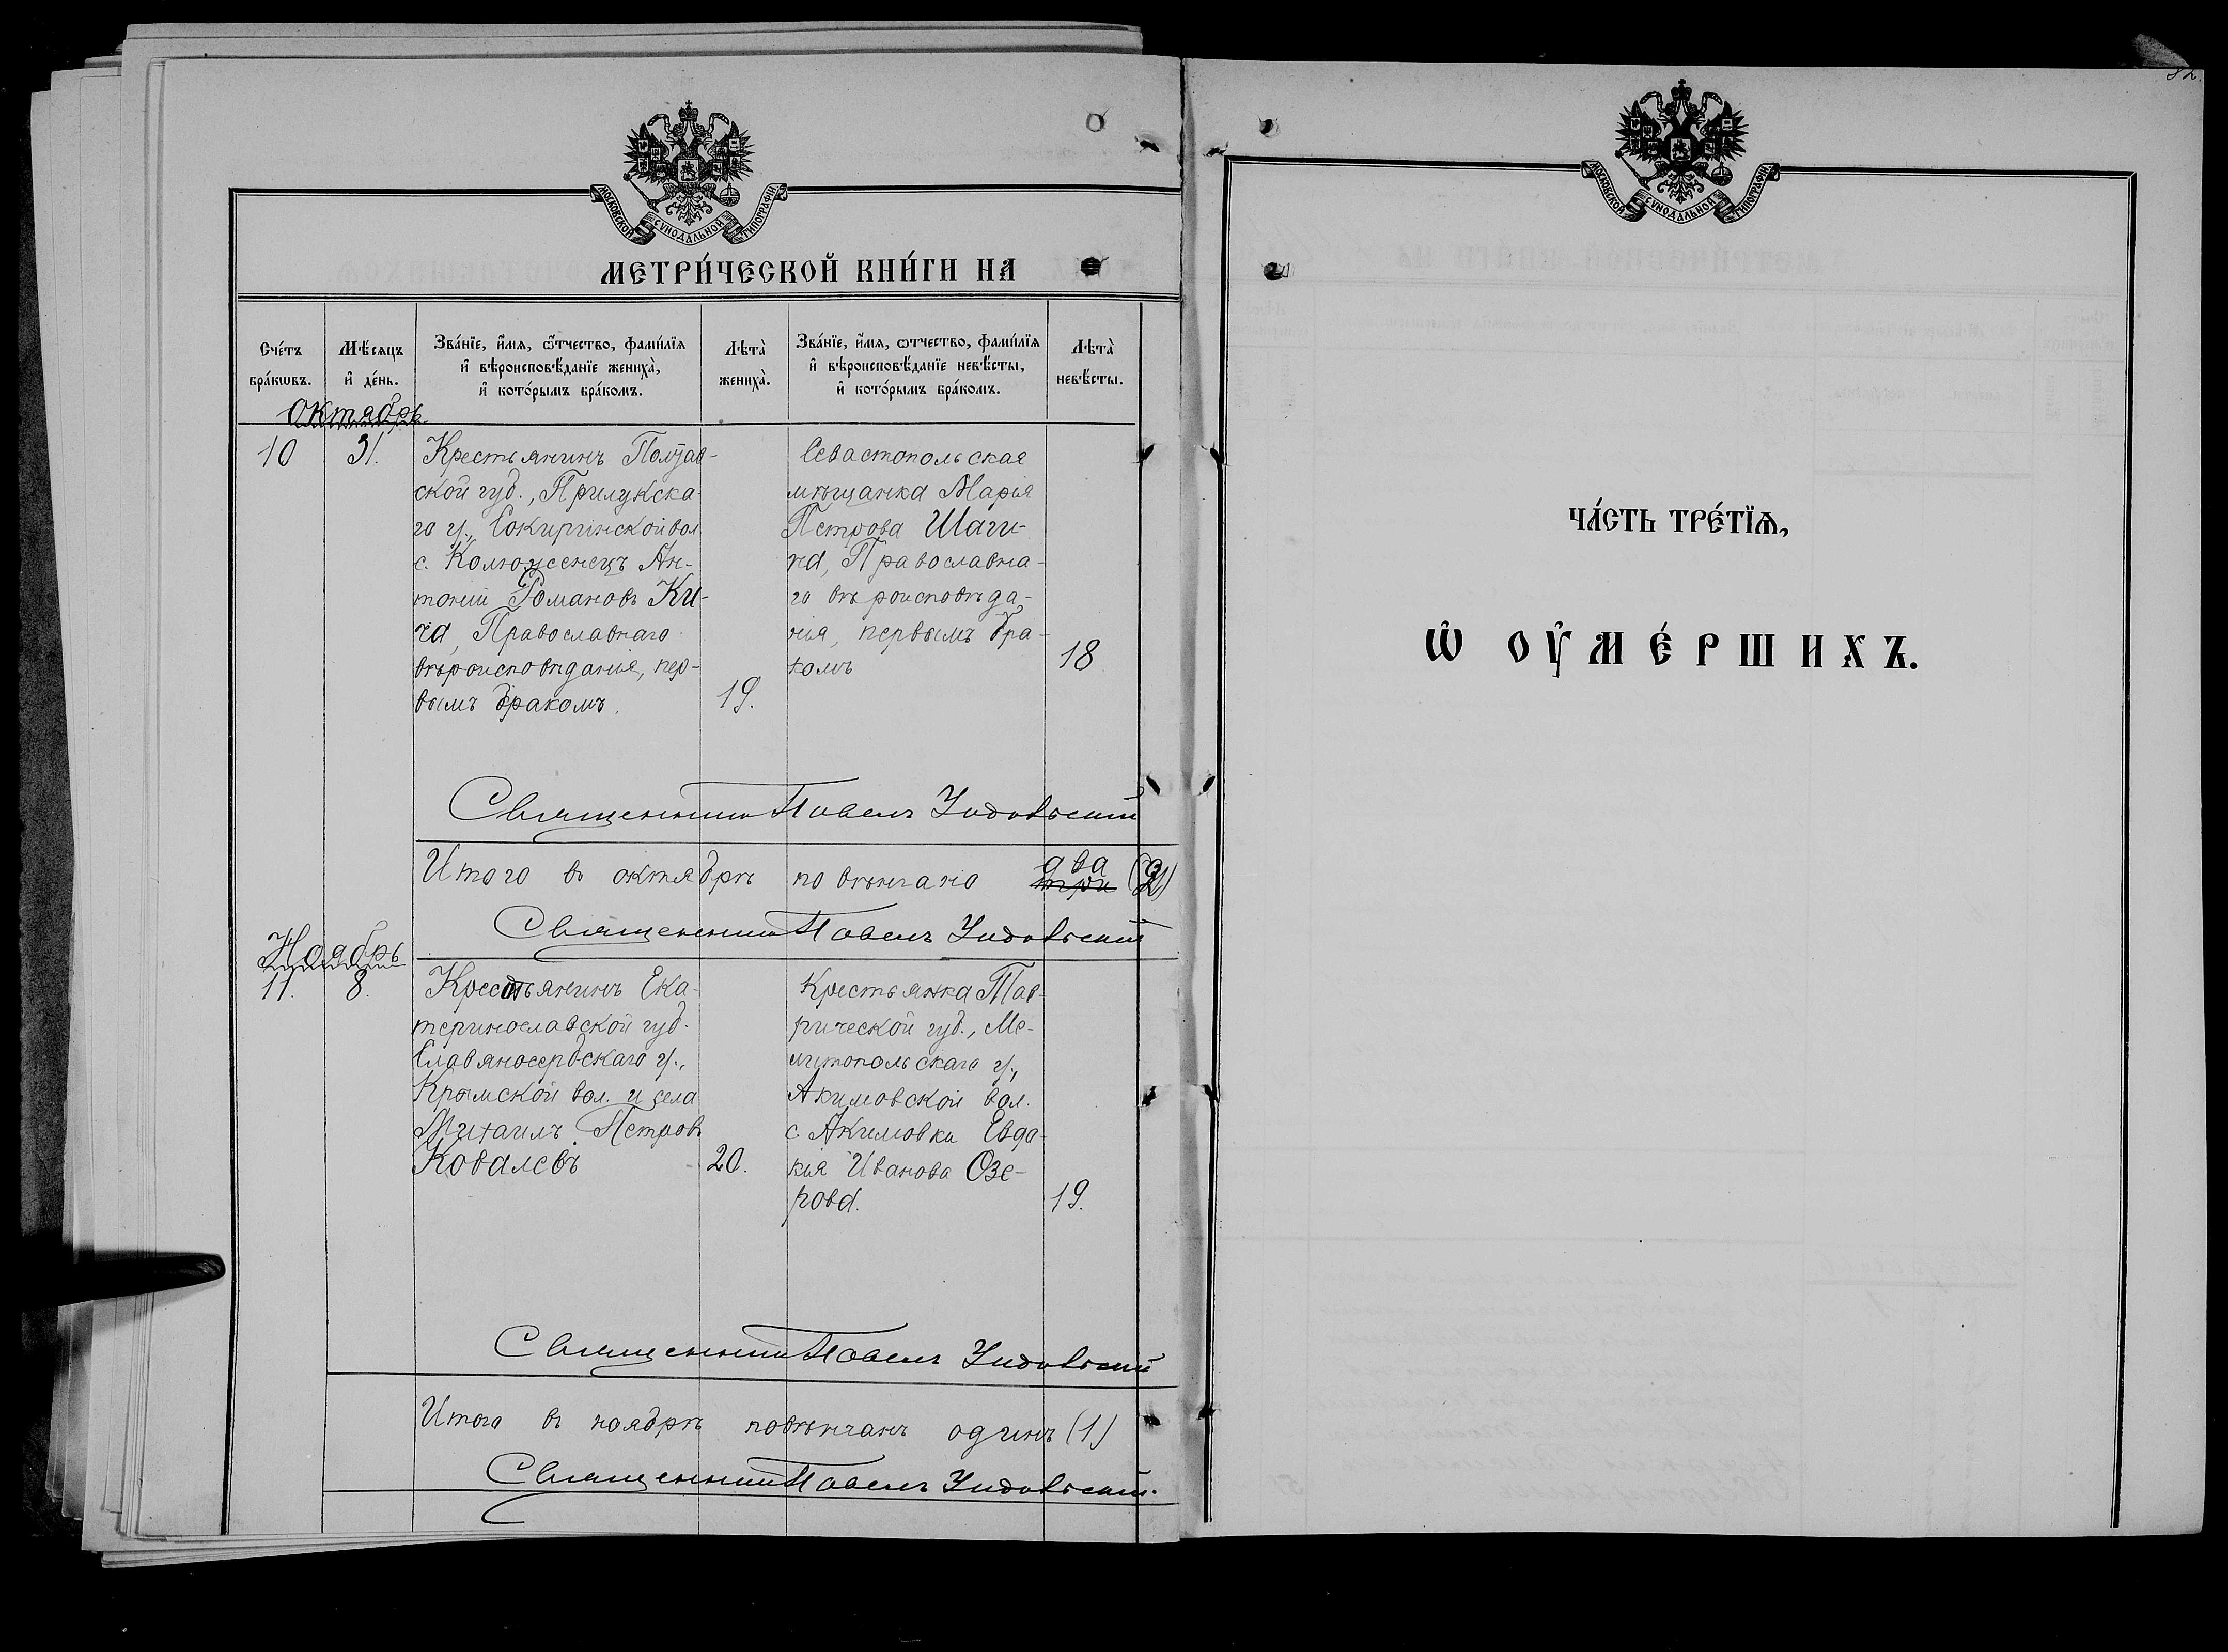 82.
МОСКОВСКОЙ СУНОДАЛЬНОЙ ТИПОГРАФІИ
МЕТРИ́ЧЕСКОЙ КНИ́ГИ НА
Сче́тъ бра́кѡвъ.
Мѣ́сяцъ и҆ де́нь.
Зва́нїе, и҆́мя, ѻ҆́тчество, фами́лїя
и҆ вѣроисповѣ́данїе жениха̀,
и҆ кото́рымъ бра́комъ.
Лѣта̀ жениха̀.
Зва́нїе, и҆́мя, ѻтчество, фами́лїя
и҆ вѣроисповѣ́данїе невѣ́сты,
и҆ кото́рымъ бра́комъ.
Лѣта̀ невѣ́сты.
Октябрь
10
31.
Крестьянинъ Полтав-
ской губ., Прилукска-
го у., Сокиринской вол
с. Калюженецъ Ан-
тоній Романовъ Ки-
ча, Православнаго
вѣроисповѣданія, пер-
вымъ бракомъ.
19.
Севастопольская
мѣщанка Марія
Петрова Шаги-
на, Православна-
го вѣроисповѣда-
нія, первымъ бра-
комъ
18
Священникъ Павелъ
Итого въ октябрѣ повѣнчано два три (2)
Священникъ Павелъ
Ноябрь
11.
8.
Крестьянинъ Ека-
теринославской губ.
Славяносербскаго у.,
Крымской вол. и села
Михаилъ Петровъ
Ковалевъ
20.
Крестьянка Тав-
рической губ., Ме-
литопольскаго у.,
Акимовской вол.
с. Акимовки Евдо-
кія Иванова Озе-
рова.
19.
Священникъ Павелъ
Итого въ ноябрѣ повѣнчанъ одинъ (1)
Священникъ Павелъ
МОСКОВСКОЙ СУНОДАЛЬНОЙ ТИПОГРАФІИ
ЧА́СТЬ ТРЕ́ТЇѦ,
Ѡ҆ ОУ҆МЕ́РШИХЪ.